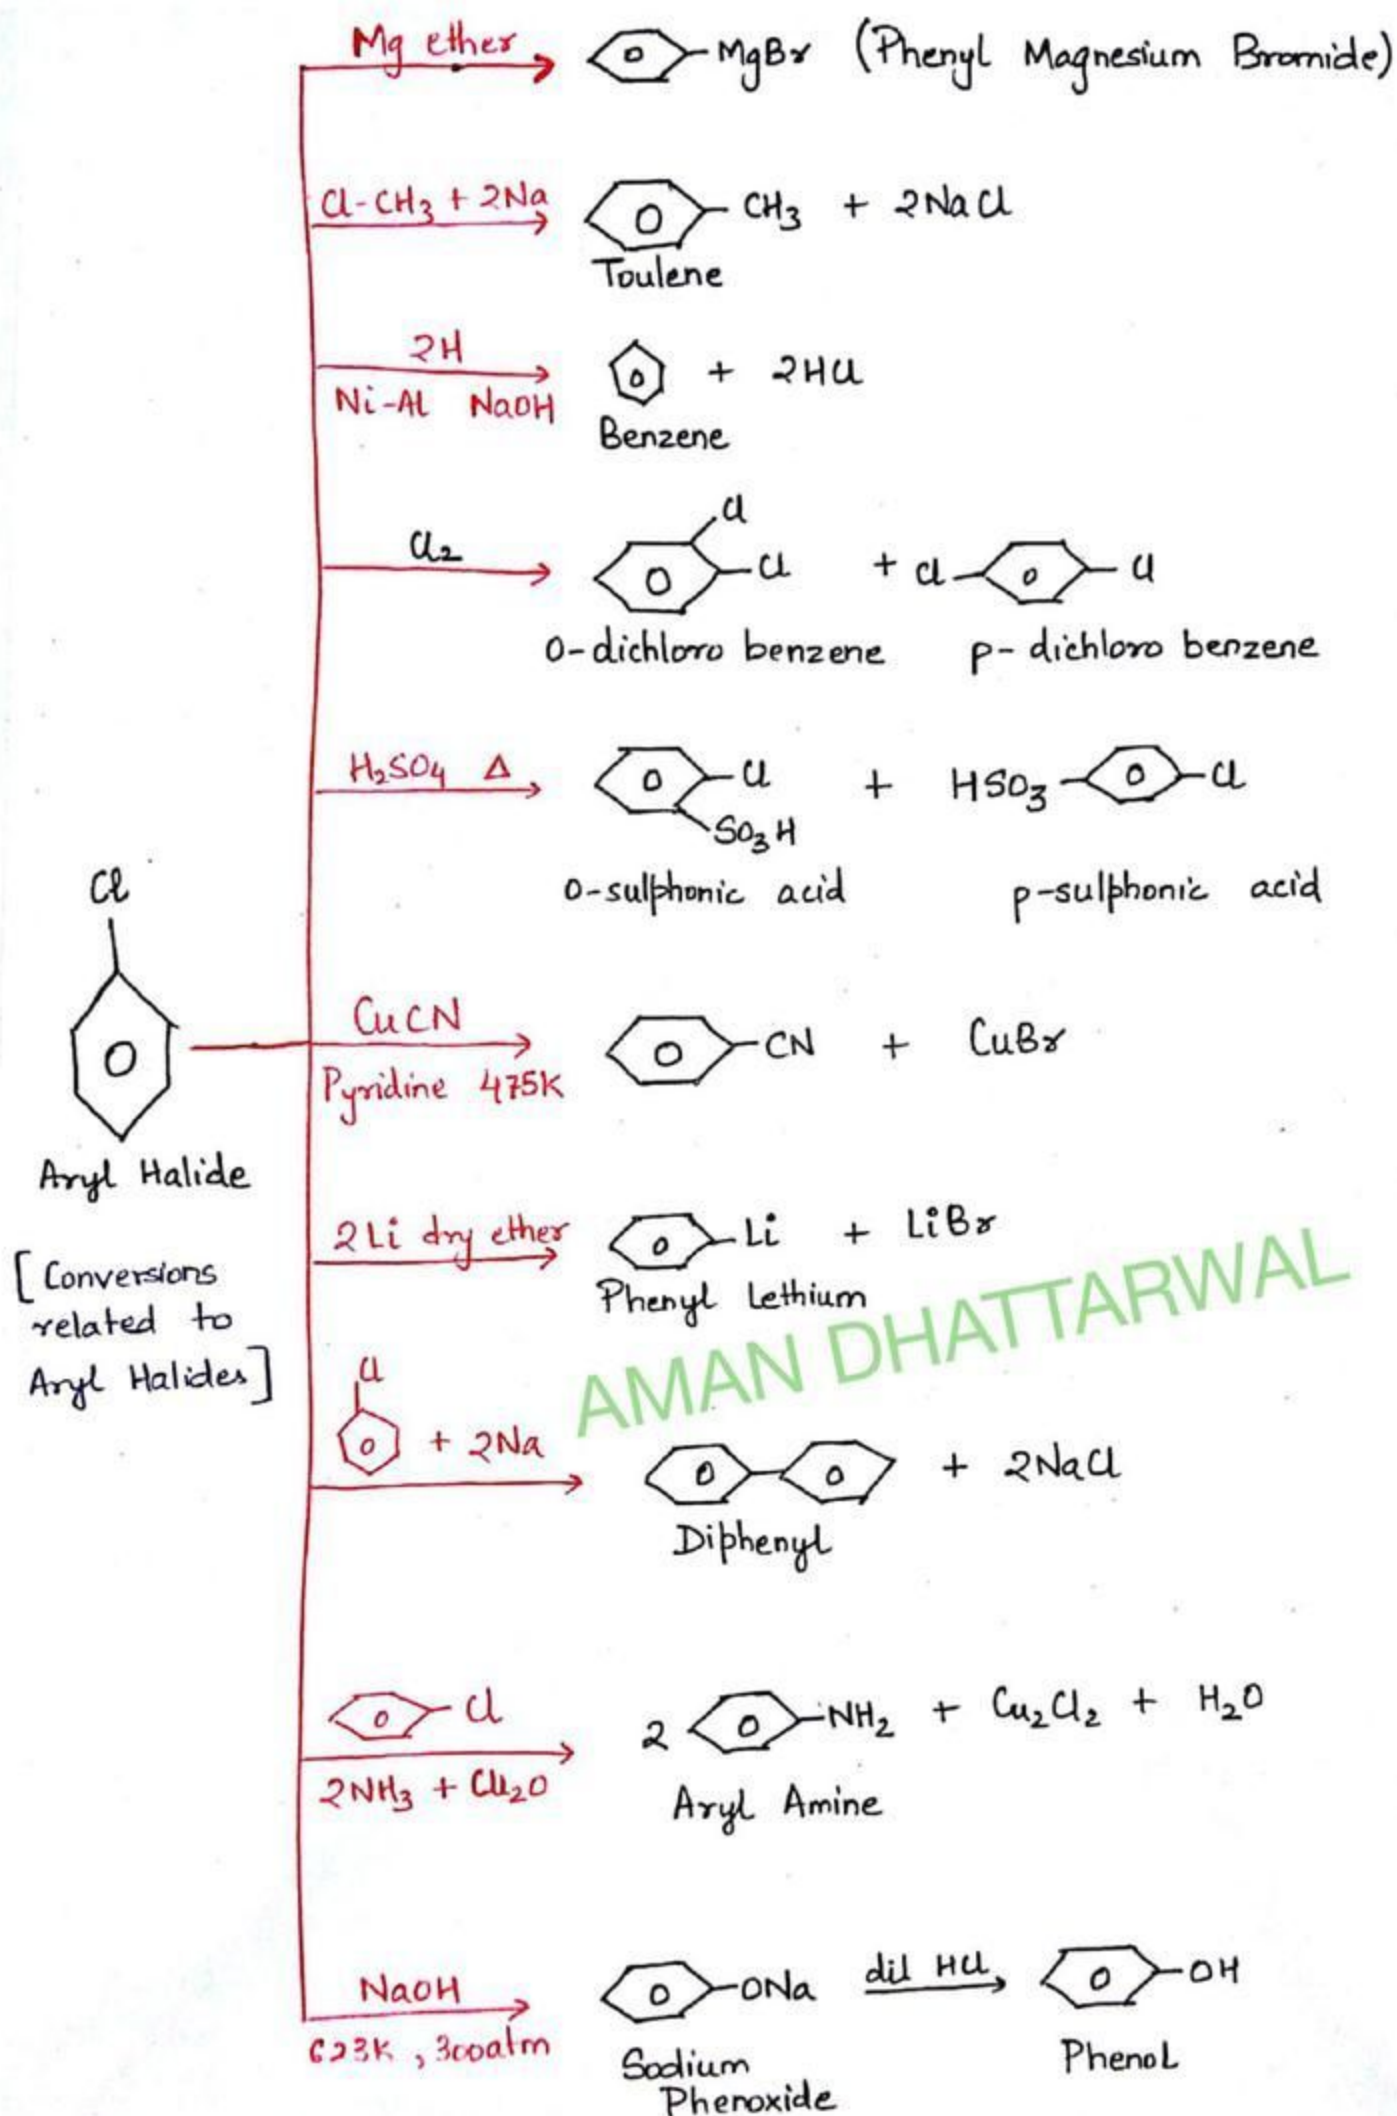 Mg ether
MgBr (Phenyl Magnesium Bromide)
Cl-CH3 + 2Na
CH3 + 2NaCl
Toulene
2H
Ni-Al NaOH
+ 2HCl
Benzene
Cl2
Cl
Cl
+ Cl
Cl
O-dichloro benzene
p- dichloro benzene
H2SO4 Δ
Cl
SO3H
+ HSO3
Cl
O-sulphonic acid
p-sulphonic acid
Cl
Aryl Halide
[Conversions
related to
Aryl Halides]
CuCN
Pyridine 475K
CN + CuBr
2Li dry ether
Li + LiBr
Phenyl Lethium
AMAN DHATTARWAL
Cl
+ 2Na
+ 2NaCl
Diphenyl
Cl
2NH3 + Cu2O
2
NH2 + Cu2Cl2 + H2O
Aryl Amine
NaOH
623K, 300atm
ONa
dil HCl
OH
Sodium
Phenoxide
Phenol